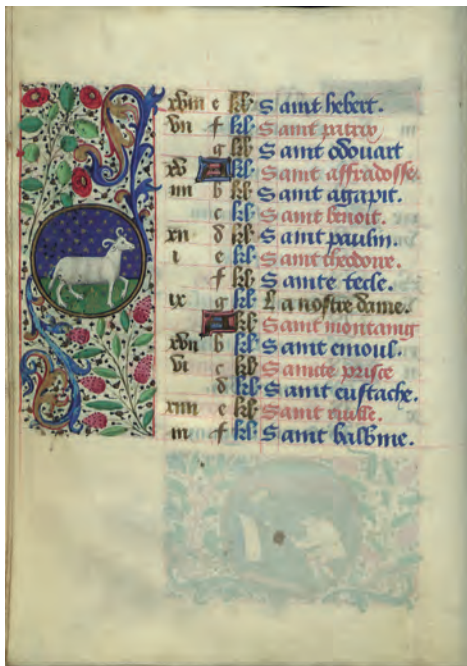 xviii e kl Saint hebert.
vii f kl Saint patrix
g kl Saint edouart
xv A kl Saint affradosse.
iiii b kl Saint agapit.
c kl Saint benoit.
xii d kl Saint paulin.
i e kl Saint theodore.
f kl Sainte tecle.
ix g kl La nostre dame.
A kl Saint montanus
xvii b kl Saint ernoul.
vi c kl Sainte prisce
d kl Saint eustache.
xiiii e kl Saint
iii f kl Saint balbine.